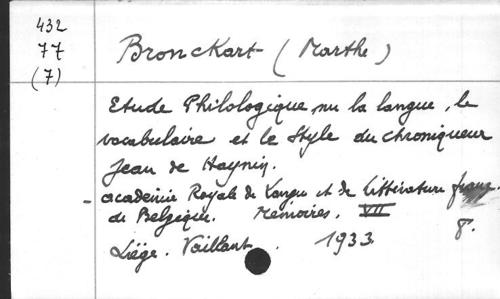 432
77
(7)
Bronckart (Marthe)
Etude Philologique sur la langue, le
vocabulaire et le Style du chroniqueur
Jean de Haynin.
- academie Royale de Langue et de Littérature franç.
de Belgique. Mémoires. VII
Liége. Vaillant. 1933. 8°.